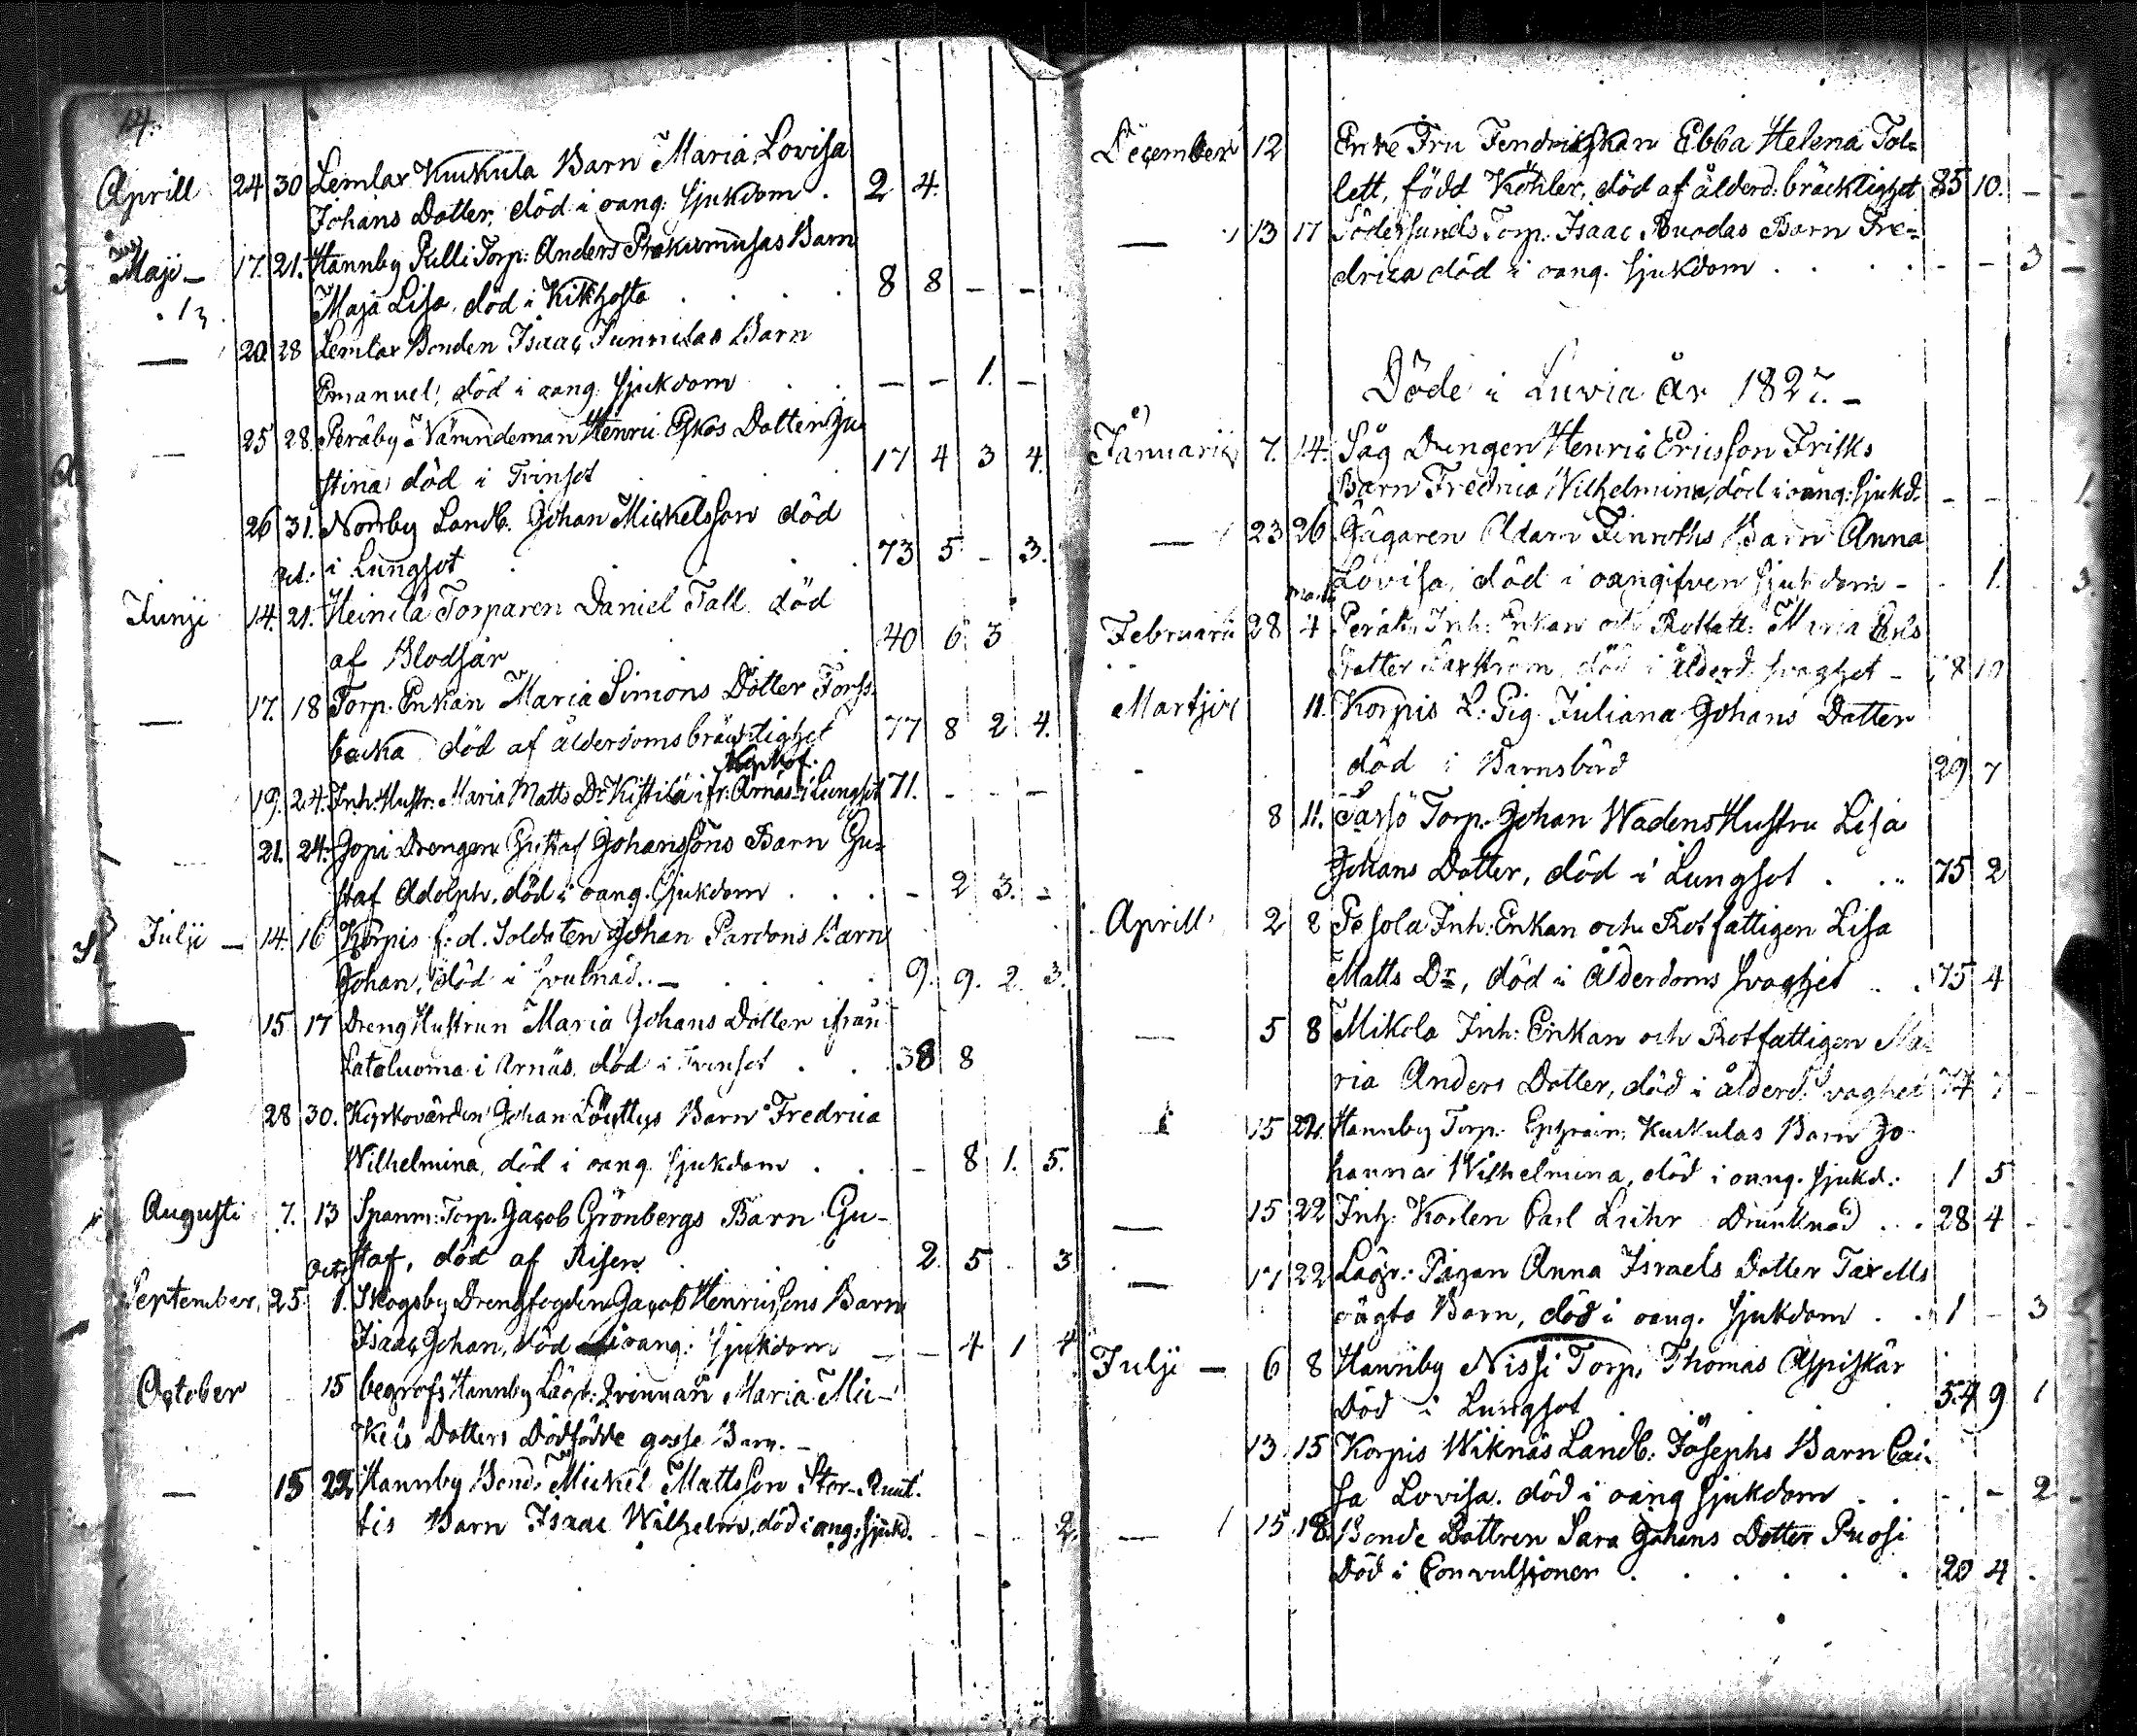 14.
Aprill 24 30 Lemlax Kuckula Barn Maria Lovisa
Johans Dotter, död i oang. sjukdom . 2 4.
Maji — 17. 21. Hannby Pulli Torp. Anders Barn
Maja Lisa, död i Kikhosta . . . 8 8 — —
— 20 28 Lemlax Bonden Isaac Junnilas Barn
Emanuel, död i oang. sjukdom . . — — 1. —
— 25 28. Peräby Nämndeman Henric Eskos Dotter Ju
stina död i Tvinsot . . 17 4 3 4.
26 31. Norrby Landb. Johan Mickelsson död
i Lungsot . . 73 5 - 3.
Junji 14. 21. Heinilä Torparen Daniel Tall död
af Blodsår . . 40 6 3
— 17. 18 Torp. Enkan Maria Simons Dotter Forss
backa död af ålderdomsbräcklighet 77 8 2 4.
19. 24. Inh. Hustr. Maria Matts Dr Kistilä ifr. Arnäs i Lungsot 71. - - -
21. 24. Jopi Drengen Gustaf Johanssons Barn Gu=
staf Adolph, död i oang. sjukdom . . . - 2 3. -
Julji — 14. 16 Korpis f. d. Soldaten Johan Pardons Barn
Johan, död i svulnad. — . . . 9. 9. 2. 3.
— 15 17 Dreng Hustrun Maria Johans Dotter ifrån
Latoluoma i Arnäs, död i Tvinsot . . 38 8
28 30. Kyrkovärden Johan Löyttys Barn Fredrica
Wilhelmina, död i oang. sjukdom . . - 8 1. 5.
Augusti 7. 13 Spanm. Torp. Jacob Grönbergs Barn Gu-
Oct. staf, död af Risen . . . 2. 5 . 3
September, 25. 1. Skogsby Drengfogden Jacob Henricssons Barn
Isaac Johan, död i oang. sjukdom — — 4 1 4
October 15 begrofs Hannby Lägr. Qvinnan Maria Mic-
kels Dotters Dödfödde gosse Barn. —
— 15 22 Hannby Bond. Mickel Mattsson Stor-Ruut
tis Barn Isaac Wilhelm, död i oang. sjukd. - - . 2.
December 12 Enke Fru Fendrickskan Ebba Helena Tol=
lett, född Köhler, död af ålderd. bräcklighet 85 10. —
— 13 17 Södersunds Torp. Isaac Ruodas Barn Fre=
drica död i oang. sjukdom . . . . - — 3 —
Döde i Luvia år 1827. —
Januarii 7. 14. Såg Drengen Henric Ericsson Frisks
Barn Fredrica Wilhelmina, död i oang. sjukd. - - . 1.
— 23 26 Jägaren Adam Finroths Barn Anna
Lovisa, död i oangifven sjukdom - . 1. . 3.
Februarii 28 4 Inh. Enkan och Rotfatt. Maria Erics
Dotter död i ålderd. svaghet —
Martji 11. Korpis L. Pig. Juliana Johans Dotter
död i Barnsbörd 29 7
8 11. Sarsö Torp. Johan Wadens Hustru Lisa
Johans Dotter, död i Lungsot . .. 75 2
Aprill 2 8 Pesola Inh. Enkan och Rotfattigen Lisa
Matts Dr, död i Ålderdoms svaghet . . 75 4
— 5 8 Mikola Inh: Enkan och Rotfattigen Ma=
ria Anders Dotter, död i ålderd. svaghet 74 7 -
15 22. Hannby Torp. Ephraim Kuckulas Barn Jo
hanna Wilhelmina, död i oang. sjukd. 1 5
— 15 22 Inh. Karlen Carl Luhr Drunknad . . 28 4 -
— 17 22 Lägr. Pigan Anna Israels Dotter Taxells
oägta Barn, död i oang. sjukdom . . 1 - 3
Julji — 6 8 Hannby Nissi Torp. Thomas Aspiskär
död i Lungsot . . . . 54 9 1
13 15 Korpis Wiknäs Landb. Josephs Barn Cai=
sa Lovisa. död i oang sjukdom . . - - 2
— 15 18. Bonde Dottren Sara Johans Dotter Puosi
död i Convulsioner . . . . . 20 4 .